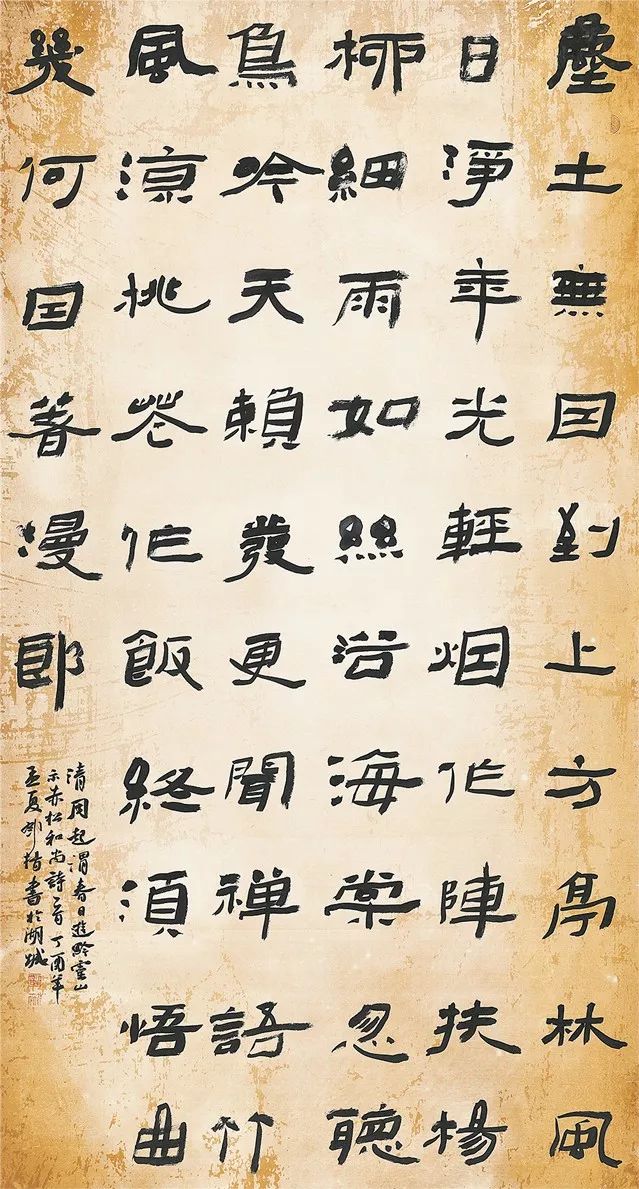 塵土無因到上方亭林風
日淨年光輕烟作陣扶楊
柳細雨如絲浴海棠忽聽
鳥吟天賴發更聞禅語竹
風涼桃花作飯終須悟曲
幾何因著漫郎
清周起渭春日遊黔霊山
示赤松和尚詩首丁酉年
孟夏書於湖城